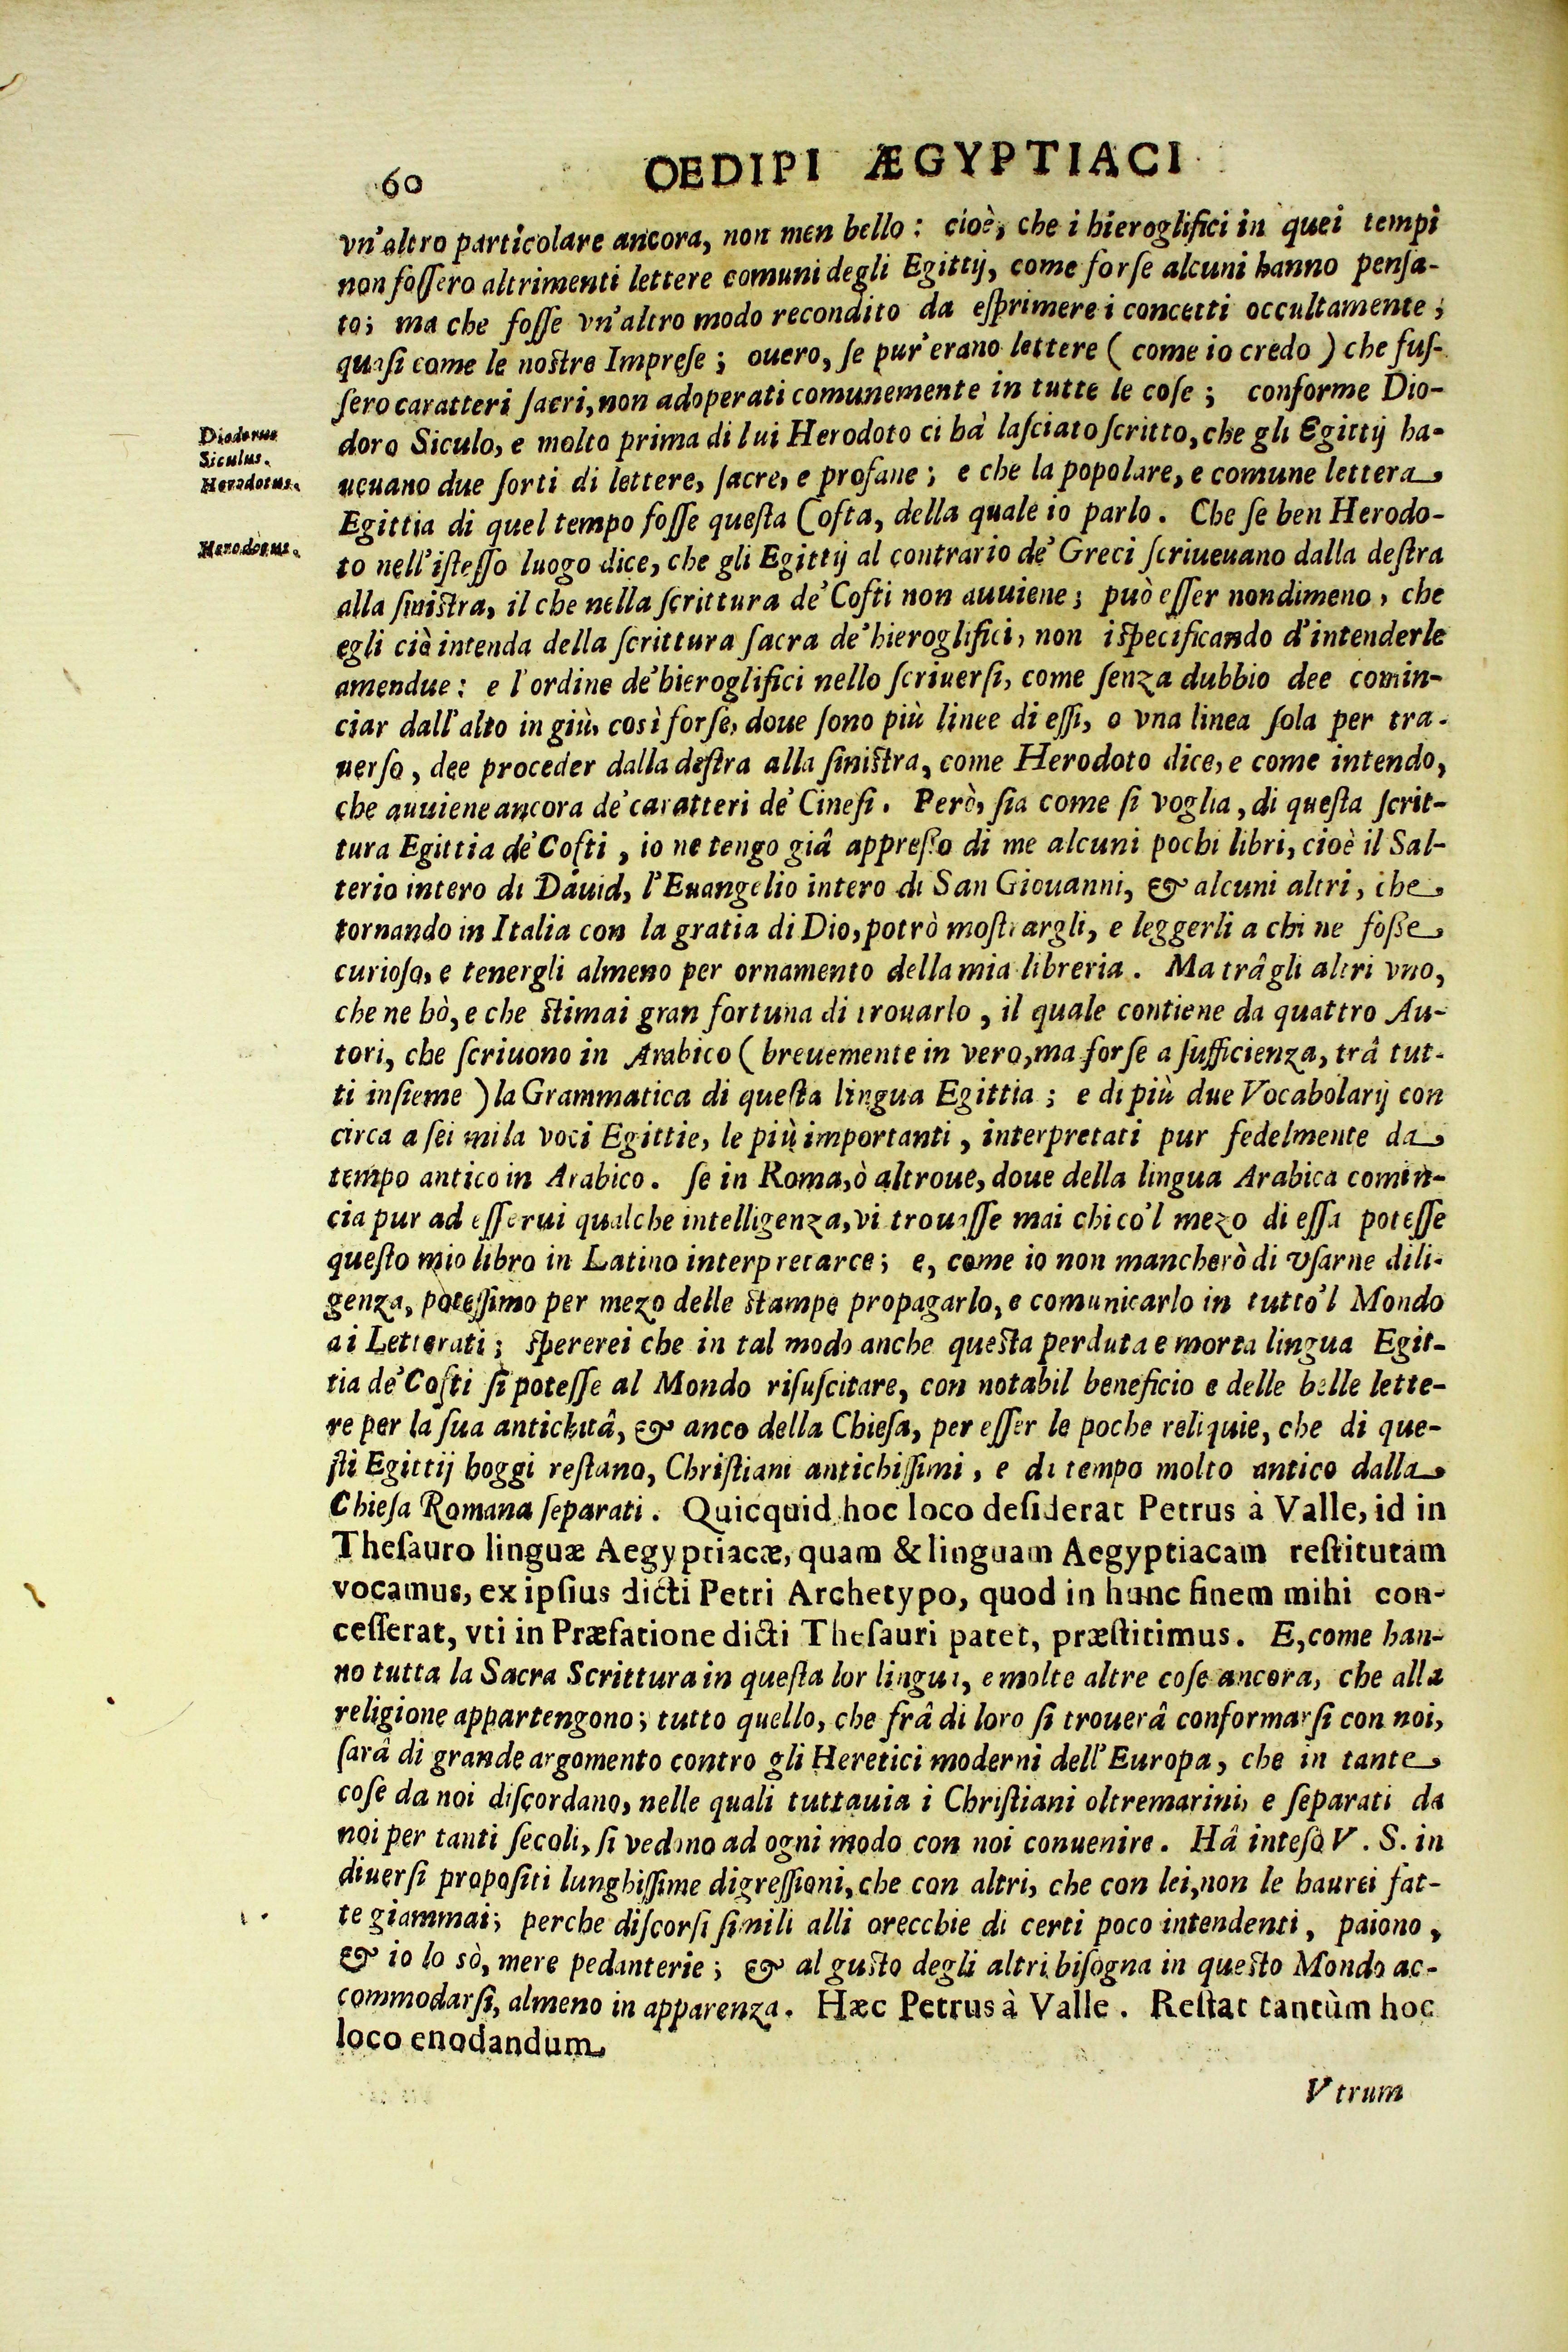 60 OEDIPI ÆGYPTIACI
vn'altro particolare ancora, non men bello: cioè, che i hieroglifici in quei tempi
non foſſero altrimenti lettere comuni degli Egittij, come forſe alcuni hanno penſa-
to; ma che foſſe vn'altro modo recondito da eſprimere i concetti occultamente;
quaſi come le noſtre Impreſe; ouero, ſe pur'erano lettere (come io credo) che fuſ-
ſero caratteri ſacri, non adoperati comunemente in tutte le coſe; conforme Dio-
Diodorus
Siculus.
doro Siculo, e molto prima di lui Herodoto ci hà laſciato ſcritto, che gli Egittij ha-
Herodotus.
ueuano due ſorti di lettere, ſacre, e profane; e che la popolare, e comune lettera
Egittia di quel tempo foſſe queſta Cofta, della quale io parlo. Che ſe ben Herodo-
Herodotus.
to nell'iſteſſo luogo dice, che gli Egittij al contrario de' Greci ſcriueuano dalla deſtra
alla ſiniſtra, il che nella ſcrittura de' Cofti non auuiene; può eſſer nondimeno, che
egli ciò intenda della ſcrittura ſacra de' hieroglifici, non iſpecificando d'intenderle
amendue: e l'ordine de' hieroglifici nello ſcriuerſi, come ſenza dubbio dee comin-
ciar dall'alto in giù, così forſe, doue ſono più linee di eſſi, o vna linea ſola per tra-
uerſo, dee proceder dalla deſtra alla ſiniſtra, come Herodoto dice, e come intendo,
che auuiene ancora de' caratteri de' Cineſi. Però, ſia come ſi voglia, di queſta ſcrit-
tura Egittia de' Cofti, io ne tengo giâ appreſſo di me alcuni pochi libri, cioè il Sal-
terio intero di Dauid, l'Euangelio intero di San Giouanni, & alcuni altri, che
tornando in Italia con la gratia di Dio, potrò moſtrargli, e leggerli a chi ne foſſe
curioſo, e tenergli almeno per ornamento della mia libreria. Ma trâ gli altri vno,
che ne hò, e che ſtimai gran fortuna di trouarlo, il quale contiene da quattro Au-
tori, che ſcriuono in Arabico (breuemente in vero, ma forſe a ſufficienza, trâ tut-
ti inſieme) la Grammatica di queſta lingua Egittia; e di più due Vocabolarij con
circa a ſei mila voci Egittie, le più importanti, interpretati pur fedelmente da
tempo antico in Arabico. ſe in Roma, ò altroue, doue della lingua Arabica comin-
cia pur ad eſſerui qualche intelligenza, vi trouaſſe mai chi co'l mezo di eſſa poteſſe
queſto mio libro in Latino interpretarce; e, come io non mancherò di vſarne dili-
genza, poteſſimo per mezo delle ſtampe propagarlo, e comunicarlo in tutto'l Mondo
ai Letterati; ſpererei che in tal modo anche queſta perduta e morta lingua Egit-
tia de' Cofti ſi poteſſe al Mondo riſuſcitare, con notabil beneficio e delle belle lette-
re per la ſua antichitâ, & anco della Chieſa, per eſſer le poche reliquie, che di que-
ſti Egittij hoggi reſtano, Chriſtiani antichiſſimi, e di tempo molto antico dalla
Chieſa Romana ſeparati. Quicquid hoc loco deſiderat Petrus à Valle, id in
Theſauro linguæ Aegyptiacæ, quam & linguam Aegyptiacam reſtitutam
vocamus, ex ipſius dicti Petri Archetypo, quod in hunc finem mihi con-
ceſſerat, vti in Præfatione dicti Theſauri patet, præſtitimus. E, come han-
no tutta la Sacra Scrittura in queſta lor lingua, e molte altre coſe ancora, che alla
religione appartengono; tutto quello, che frâ di loro ſi trouerâ conformarſi con noi,
ſarâ di grande argomento contro gli Heretici moderni dell'Europa, che in tante
coſe da noi diſcordano, nelle quali tuttauia i Chriſtiani oltremarini, e ſeparati da
noi per tanti ſecoli, ſi vedono ad ogni modo con noi conuenire. Hâ inteſo V. S. in
diuerſi propoſiti lunghiſſime digreſſioni, che con altri, che con lei, non le haurei fat-
te giammai; perche diſcorſi ſimili alli orecchie di certi poco intendenti, paiono,
& io lo sò, mere pedanterie; & al guſto degli altri biſogna in queſto Mondo ac-
commodarſi, almeno in apparenza. Hæc Petrus à Valle. Reſtat tantùm hoc
loco enodandum
Vtrum